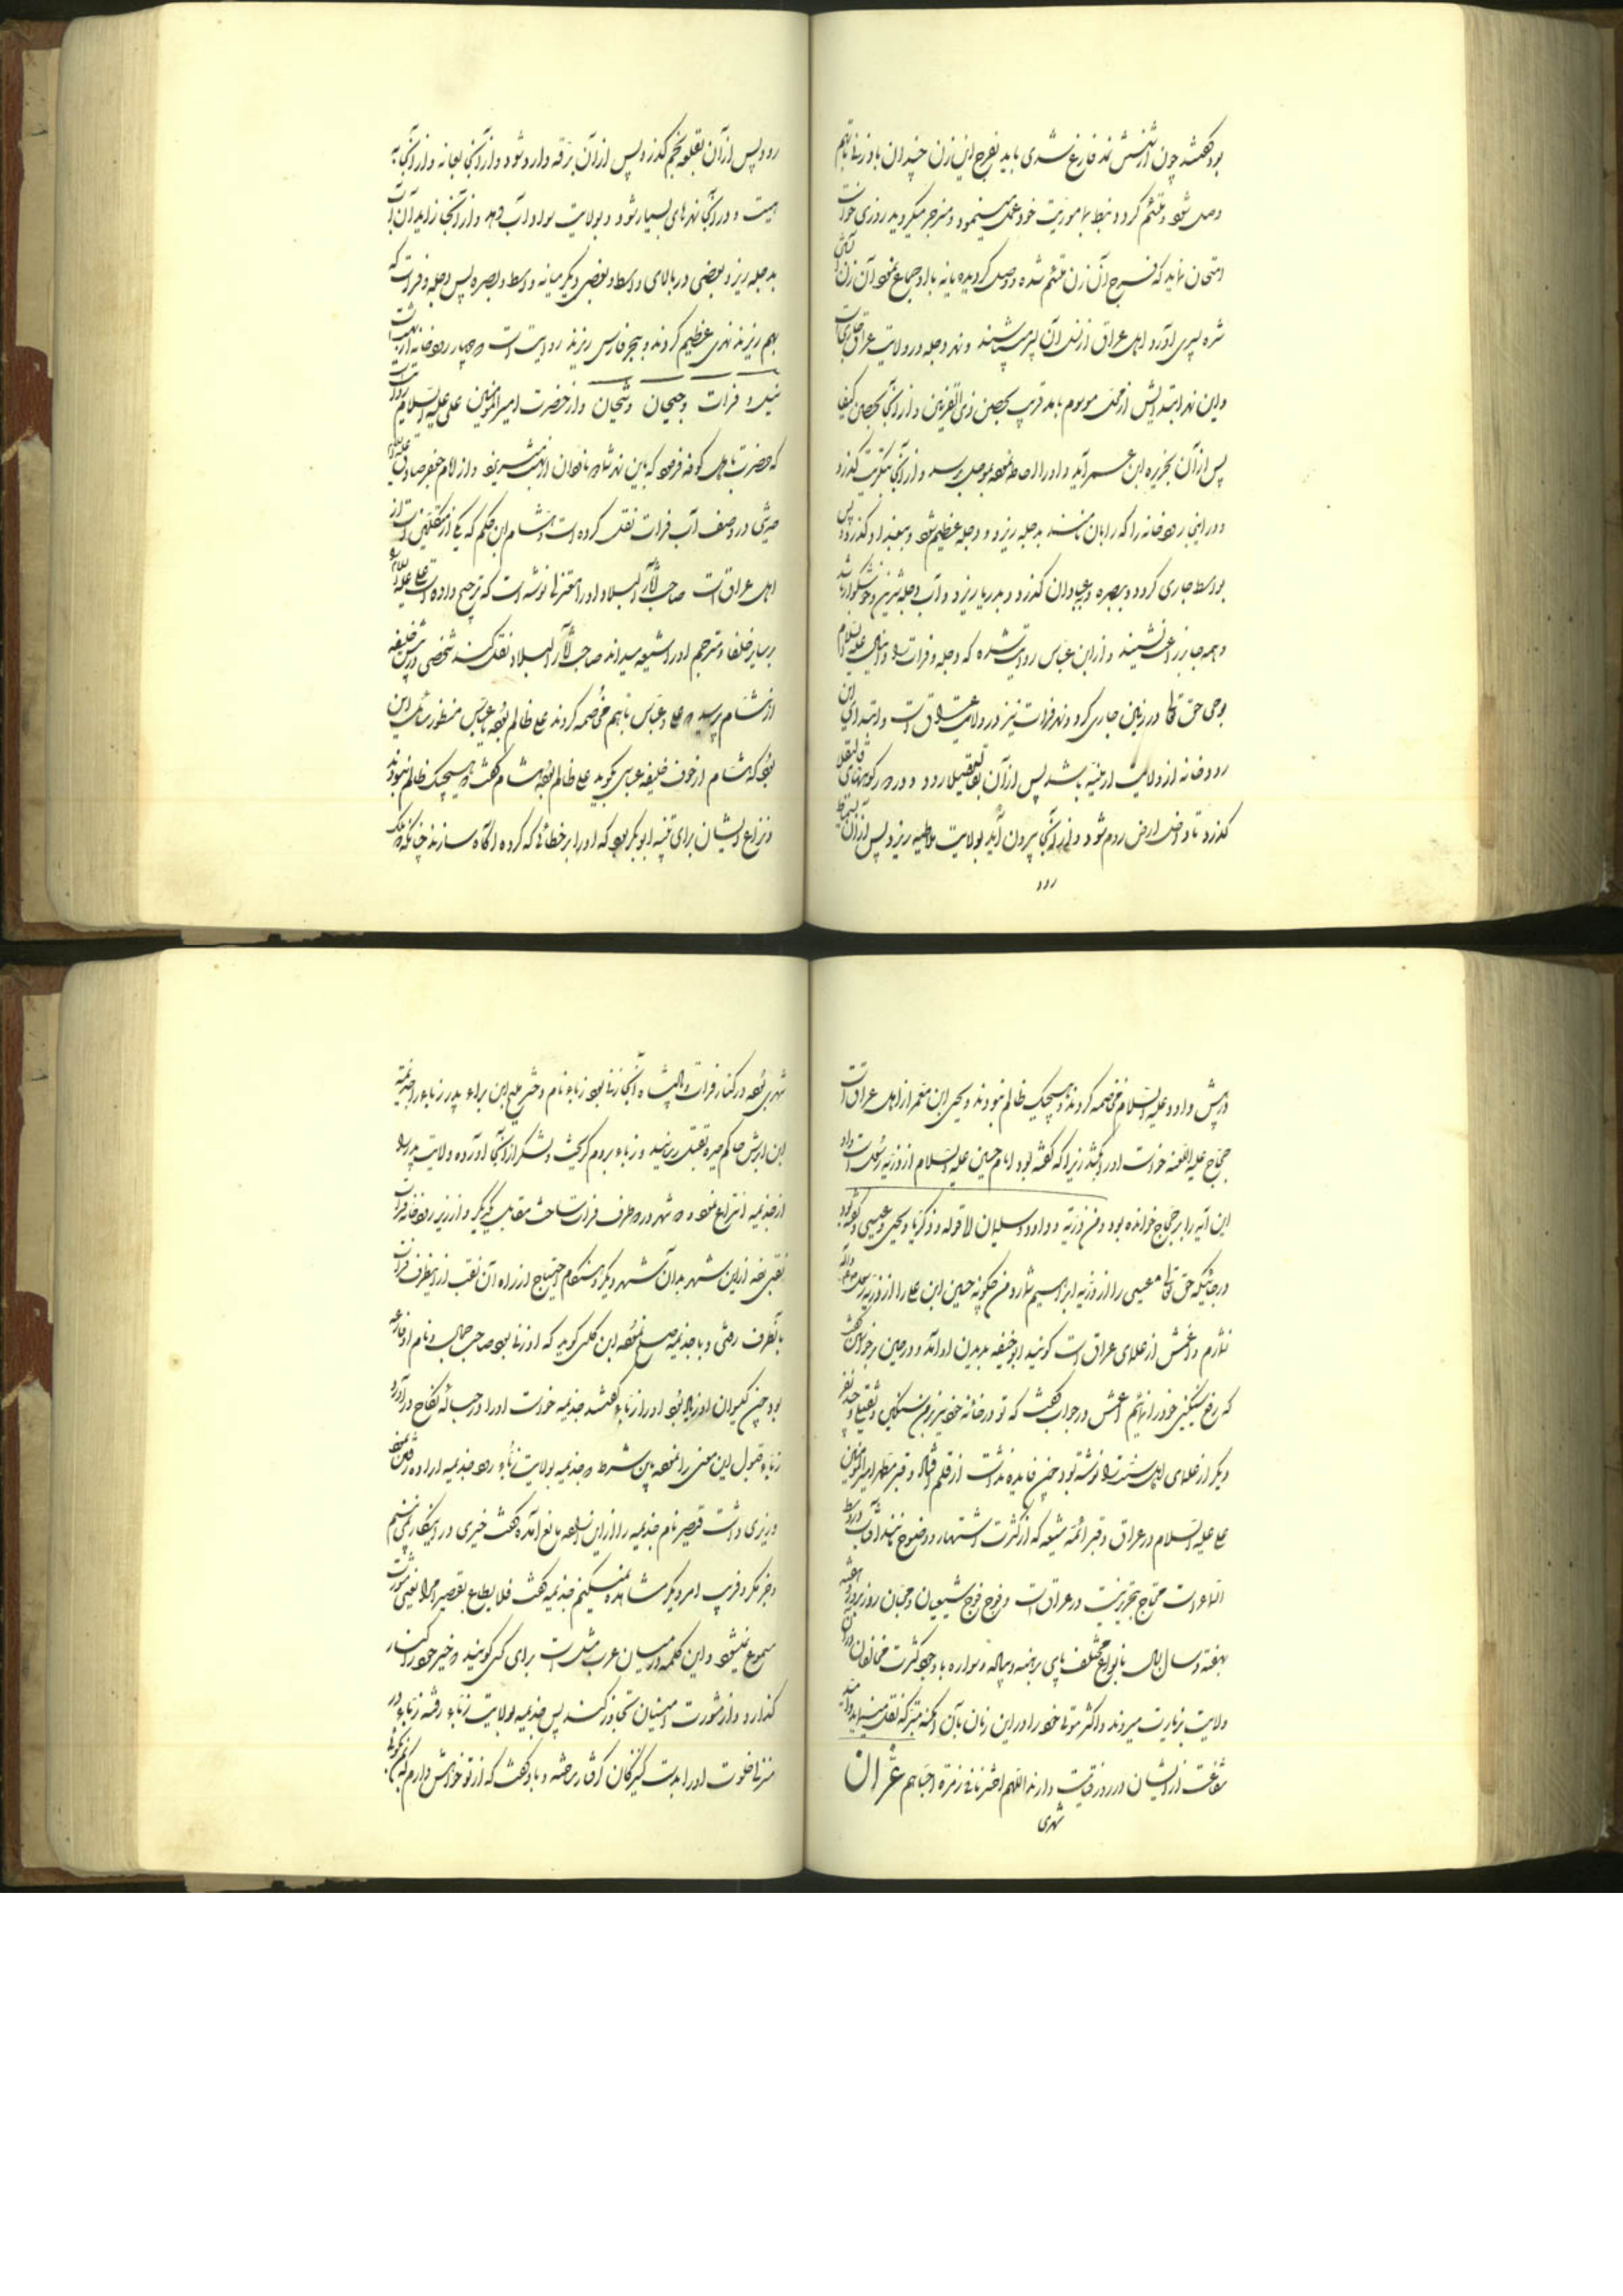 بود گفتند چون از شستن فارغ شدی باید بفرج این زن چندان باد زنی تا بهم
وصل شود و ملتئم گردد نبطی بماموریت خود عمل مینمود و منزجر میگردید روزی خواست
امتحان نماید که فرج آن زن ملتئم شده و وصل گردیده یا نه با او جماع نمود آن زن
شده پسری آورد اهل عراق از نسل آن پسر میباشند و نهر دجله در ولایت عراق جاری است
و این نهر ابتدایش از محل موسوم بآمد قریب بحصن ذی القرنین و از آنجا بحصن کیفا
پس از آن بجزیره ابن عمر آید و او را احاطه نموده بموصل رسد و از آنجا بتکریت گذرد
و در این رودخانه را که رابان نامند بدجله ریزد و دجله عظیم شود و ببغداد گذرد پس
بواسط جاری گردد و ببصره و عبادان گذرد و بدریا ریزد و آب دجله شیرین و خوشگوار باشد
و همه جا زراعت نشیند و از ابن عباس روایت شده که دجله و فرات را دانیال علیه السلام
بوحی حق تعالی در زمین جاری کرد و نهر فرات نیز در ولایت عراق است و ابتدای این
رودخانه از ولایت ارمنیه باشد پس از آن بقالیقیلا رود و در کوههای قالیقلا
گذرد تا داخل ارض روم شود و از آنجا بیرون آید بولایت ملطیه ریزد پس از آن بسمیساط
رود
رود پس از آن بقلعه نجم گذرد پس از آن برقه وارد شود و از آنجا بعانه و از آنجا به
هیت و در آنجا نهرهای بسیار شود و بولایت سواد آب دهد و از آنجا زاید آن آب
بدجله ریزد بعضی در بالای واسط و بعضی دیگر میانه واسط و بصره پس دجله و فرات که
بهم ریزند نهری عظیم گردند و ببحر فارس ریزند روایت است که چهار رودخانه از بهشت است
نیل و فرات و جیحان و سیحان و از حضرت امیرالمؤمنین علی علیه السلام روایت است
که حضرت باهل کوفه فرمود که باین نهر شما دو ناودان از بهشت میریزد و از امام جعفر صادق علیه السلام
حدیثی در وصف آب فرات نقل کرده است و هشام ابن حکم که یکی از متکلمین است از
اهل عراق است صاحب آثار البلاد او را معتزلی نوشته است که ترجیح داده است علی علیه السلام را
بر سایر خلفا و مترجم او را شیعه میداند صاحب آثار البلاد نقل کند شخصی در پیش خلیفه
از هشام پرسید که علی و عباس با هم مخاصمه کردند علی ظالم بود یا عباس منظور سائل این
بود که هشام از خوف خلیفه عباسی گوید علی ظالم بود هشام گفت که هیچیک ظالم نبودند
و نزاع ایشان برای تنبیه ابوبکر بود که او را بر خطائی که کرده آگاه سازند چنانکه دو ملک
در پیش داود علیه السلام مخاصمه کردند و هیچیک ظالم نبودند و یحیی ابن معمر از اهل عراق است
حجاج علیه اللعنه خواست او را بکشد زیرا که گفته بود امام حسین علیه السلام از ذریه رسول است او
این آیه را بر حجاج خوانده بود و من ذریته داود و سلیمان الا قوله و زکریا و یحیی و عیسی و گفته بود
در جائیکه حق تعالی عیسی را از ذریه ابراهیم شمارد من چگونه حسین ابن علی را از ذریه رسول صلی الله علیه و آله
نشمارم و اعمش از علمای عراق است گویند ابوحنیفه بدیدن او آمد و در حین برخواستن گفت
که رفع سنگینی خود را نمایم اعمش در جواب گفت که تو در خانه خود نیز بر من سنگین و ثقیلی و چند نفر
دیگر از علمای اهل سنت را نوشته بود چون فایده نداشت از قلم افتاد و قبر مطهر امیرالمؤمنین
علی علیه السلام در عراق و قبر ائمه شیعه که از کثرت اشتهار و وضوح مانند آفتاب در وسط
السماء است محتاج بتحریر نیست در عراق است و فوج فوج شیعیان و محبان روز بروز و هفته
بهفته و سال بسال بانواع مختلف پای برهنه و پیاده و سواره با وجود کثرت مخالفان در آن
ولایت بزیارت میروند و اکثر موتی خود را در این زمان بآن امکنه متبرکه نقل مینمایند و امید
شفاعت از ایشان در روز قیامت دارند اللهم احشرنا فی زمرة احبائهم عزان
شهری
شهری بود در کنار فرات و پادشاه آنجا زنی بود زباء نام دختر ملیح ابن براء پدر زباء را جذیمه
ابن ابرش حاکم حیره بقتل رسانید و زباء بروم گریخت و لشکر از آنجا آورده ولایت پدر را
از جذیمه انتزاع نمود و دو شهر در دو طرف فرات ساخت مقابل یکدیگر و از زیر رودخانه فرات
نقبی زد از این شهر بدان شهر دیگر و هنگام احتیاج از راه آن نقب از اینطرف فرات
بآنطرف رفتی و با جذیمه صلح نموده ابن کلبی گوید که او زنی بود صاحب جمال و نام او فارعه
بود چون گیسوان او زیاد بود او را زباء گفتند جذیمه خواست او را در حباله نکاح درآورد
زباء قبول این معنی را نموده باین شرط که جذیمه بولایت زباء رود جذیمه اراده رفتن نمود
وزیری داشت قصیر نام جذیمه را از این اراده مانع آمده گفت خیری در اینکار نمی بینم
و جز مکر و فریب امر دیگر مشاهده نمیکنم جذیمه گفت فلا یطاع لقصیر امر یعنی مشورت
مسموع نمیشود و این کلمه در میان عرب مثل است برای کسی گویند که خیر خود را کنار
گذارد و از مشورت امینان تجاوز کند پس جذیمه بولایت زباء رفته زباء در
منزل خلوت او را بدست کنیزکان گرفتار ساخته و باو گفت که از تو خواهش دارم که